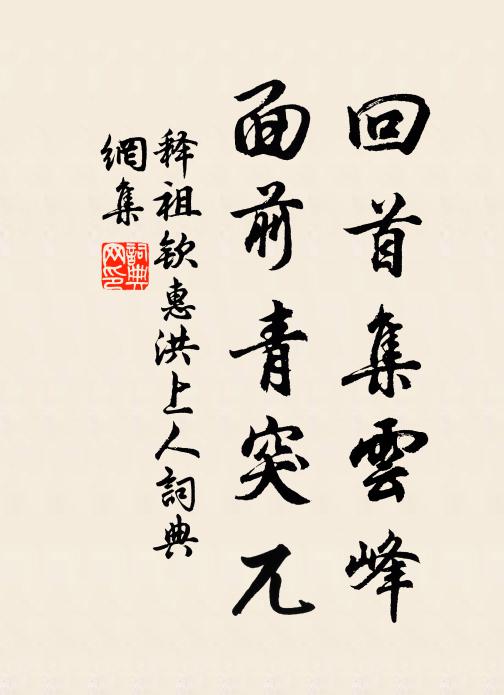 回首集雲峰
面前青突兀
释祖钦惠洪上人詞典
網集
詞典
网印